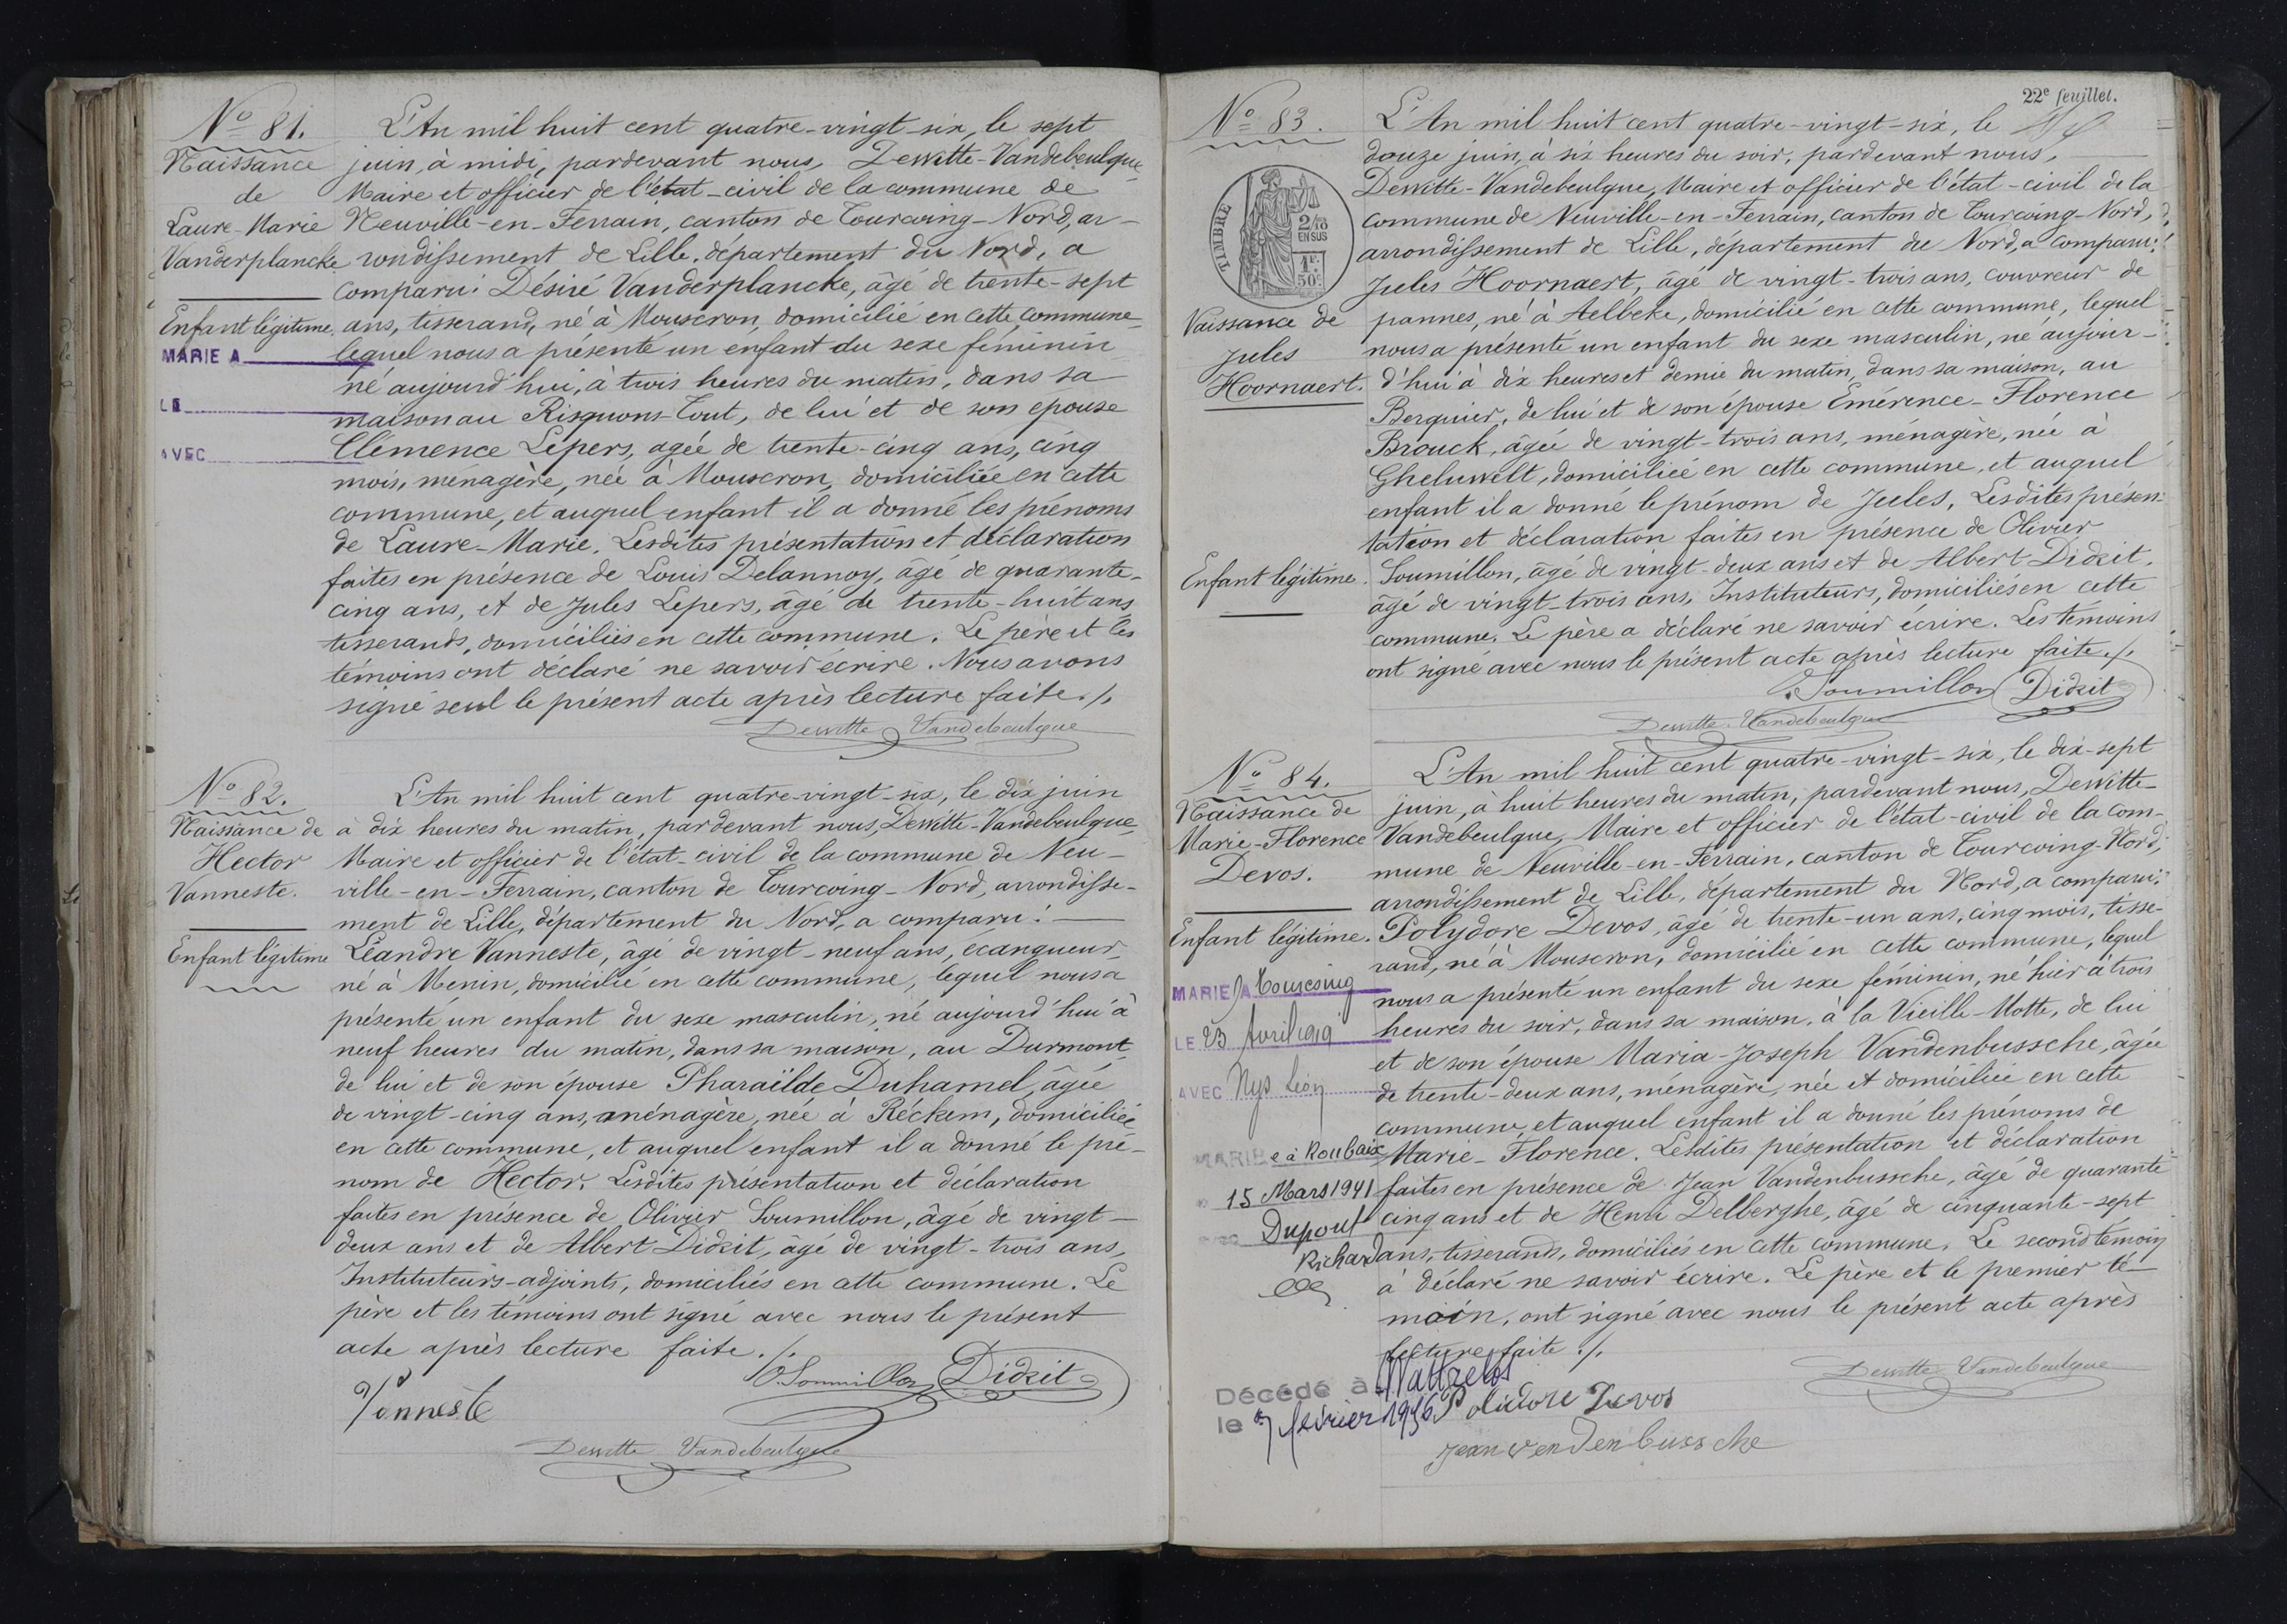 N° 81.
Naissance
de
Laure-Marie
Vanderplancke
Enfant légitime.
MARIE A
LE
AVEC
L'An mil huit cent quatre-vingt-six, le sept
juin, à midi, pardevant nous, Dewitte-Vandebeulque,
Maire et officier de l'état-civil de la commune de
Neuville-en-Ferrain, canton de Tourcoing-Nord, ar-
rondissement de Lille, département du Nord, a
comparu: Désiré Vanderplancke, âgé de trente-sept
ans, tisserand, né à Mouscron, domicilié en cette commune,
lequel nous a présenté un enfant du sexe féminin
né aujourd'hui, à trois heures du matin, dans sa
maison au Risquons-Tout, de lui et de son épouse
Clémence Lepers, agée de trente-cinq ans, cinq
mois, ménagère, née à Mouscron, domiciliée en cette
commune, et auquel enfant il a donné les prénoms
de Laure-Marie. Lesdites présentation et déclaration
faites en présence de Louis Delannoy, âgé de quarante-
cinq ans, et de Jules Lepers, âgé de trente-huit ans
tisserands, domiciliés en cette commune. Le père et les
témoins ont déclaré ne savoir écrire. Nous avons
signé seul le présent acte après lecture faite./.
Dewitte Vandebeulque
N° 82.
Naissance de
Hector
Vanneste.
Enfant légitime
L'An mil huit cent quatre-vingt-six, le dix juin
à dix heures du matin, pardevant nous, Dewitte-Vandebeulque,
Maire et officier de l'état-civil de la commune de Neu-
ville-en-Ferrain, canton de Tourcoing-Nord, arrondisse-
ment de Lille, département du Nord, a comparu:
Léandre Vanneste, âgé de vingt-neuf ans, écangueur,
né à Menin, domicilié en cette commune, lequel nous a
présenté un enfant du sexe masculin, né aujourd'hui à
neuf heures du matin, dans sa maison, au Durmont,
de lui et de son épouse Pharaïlde Duhamel, âgée
de vingt-cinq ans, ménagère, née à Réckem, domiciliée
en cette commune, et auquel enfant il a donné le pré-
nom de Hector. Lesdites présentation et déclaration
faites en présence de Olivier Soumillon, âgé de vingt-
deux ans et de Albert Didzit, âgé de vingt-trois ans,
Instituteurs-adjoints, domiciliés en cette commune. Le
père et les témoins ont signé avec nous le présent
acte après lecture faite./.
Vanneste
O. Soumillon Didzit
Dewitte Vandebeulque
22e feuillet.
N° 83.
TIMBRE
2/10
EN SUS
1F.
50c.
Naissance de
Jules
Hoornaert.
Enfant légitime.
L'An mil huit cent quatre-vingt-six, le
douze juin, à six heures du soir, pardevant nous,
Dewitte-Vandebeulque, Maire et officier de l'état-civil de la
commune de Neuville-en-Ferrain, canton de Tourcoing-Nord,
arrondissement de Lille, département du Nord, a comparu:
Jules Hoornaert, âgé de vingt-trois ans, couvreur de
pannes, né à Aelbeke, domicilié en cette commune, lequel
nous a présenté un enfant du sexe masculin, né aujour-
d'hui à dix heures et demie du matin, dans sa maison, au
Berquier, de lui et de son épouse Emérence-Florence
Brouck, âgée de vingt-trois ans, ménagère, née à
Gheluwelt, domiciliée en cette commune, et auquel
enfant il a donné le prénom de Jules. Lesdites présen-
tation et déclaration faites en présence de Olivier
Soumillon, âgé de vingt-deux ans et de Albert Didzit,
âgé de vingt-trois ans, Instituteurs, domiciliés en cette
commune. Le père a déclaré ne savoir écrire. Les témoins
ont signé avec nous le présent acte après lecture faite./.
Soumillon Didzit
Dewitte Vandebeulque
N° 84.
Naissance de
Marie-Florence
Devos.
Enfant légitime.
MARIE A Tourcoing
LE 23 Avril 1919
AVEC Nys Léon
MARIE e à Roubaix
15 Mars 1941
Dupont
Richard
L'An mil huit cent quatre-vingt-six, le dix-sept
juin, à huit heures du matin, pardevant nous, Dewitte-
Vandebeulque, Maire et officier de l'état-civil de la com-
mune de Neuville-en-Ferrain, canton de Tourcoing-Nord,
arrondissement de Lille, département du Nord, a comparu:
Polydore Devos, âgé de trente-un ans, cinq mois, tisse-
rand, né à Mouscron, domicilié en cette commune, lequel
nous a présenté un enfant du sexe féminin, né hier à trois
heures du soir, dans sa maison, à la Vieille-Motte, de lui
et de son épouse Maria-Joseph Vandenbussche, âgée
de trente-deux ans, ménagère, née et domiciliée en cette
commune, et auquel enfant il a donné les prénoms de
Marie-Florence. Lesdites présentation et déclaration
faites en présence de Jean Vandenbussche, âgé de quarante
cinq ans et de Henri Delberghe, âgé de cinquante-sept
ans, tisserands, domiciliés en cette commune. Le second témoin
à déclaré ne savoir écrire. Le père et le premier té-
moin, ont signé avec nous le présent acte après
lecture faite./.
Dewitte Vandebeulque
Décédé à Wattrelos
le 7 février 1956
Polidore Devos
Jean Vendenbussche